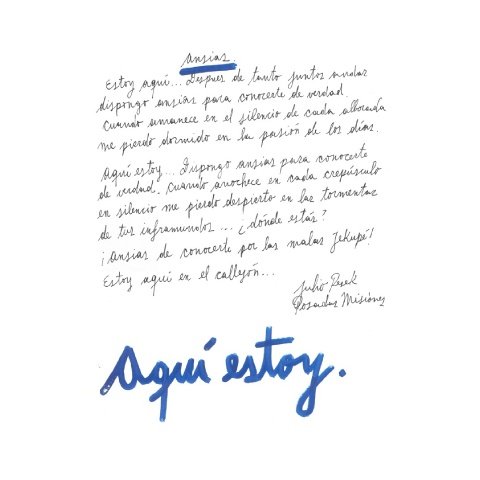 Ansias.
Estoy aquí... Despues de tanto juntos andar
dispongo ansias para conocerte de verdad.
Cuando amanece en el silencio de cada alborada
me pierdo dormido en la pasión de los días.
Aquí estoy... Dispongo ansias para conocerte
de verdad. Cuando anochece en cada crepúsculo
en silencio me pierdo despierto en las tormentas
de tus inframundos... ¿dónde estás?
¡Ansias de conocerte por las malas Jekupé!
Estoy aquí en el callejón...
Julio
Posadas Misiones
Aquí estoy.